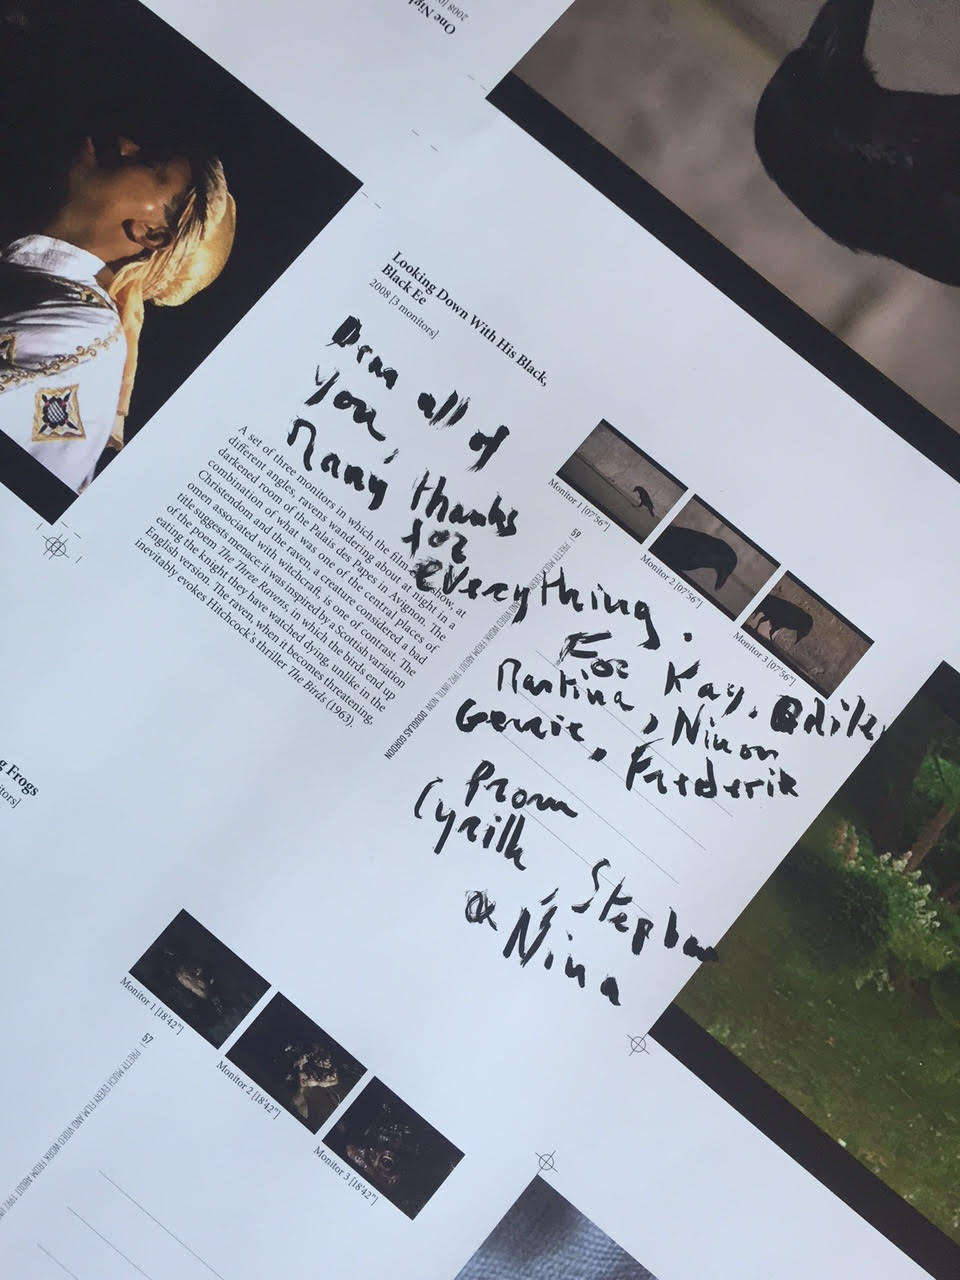 One Nigh
2008 [
Looking Down With His Black,
Black Ee
2008 [3 monitors]
Dear all of
you,
Many thanks
for
everything.
For Kay,
Martina, Ninon
Gerrie, Frederik
From
Cyrille, Stephan
& Nina
A set of three monitors in which the film
different angles, ravens wandering about at night in a
darkened room of the Palais des Papes in Avignon. The
combination of what was one of the central places of
Christendom and the raven, a creature considered a bad
omen associated with witchcraft, is one of contrast. The
title suggests menace: it was inspired by a Scottish variation
of the poem The Three Ravens, in which the birds end up
eating the knight they have watched dying, unlike in the
English version. The raven, when it becomes threatening,
inevitably evokes Hitchcock's thriller The Birds (1963).
Monitor 1 [07'56"]
Monitor 2 [07'56"]
Monitor 3 [07'56"]
59 PRETTY MUCH EVERY AND VIDEO WORK FROM ABOUT 1992 UNTIL NOW. DOUGLAS GORDON
g Frogs
itors]
Monitor 1 [18'42"]
Monitor 2 [18'42"]
Monitor 3 [18'42"]
57 PRETTY MUCH EVERY FILM AND VIDEO WORK FROM ABOUT 1992 UN